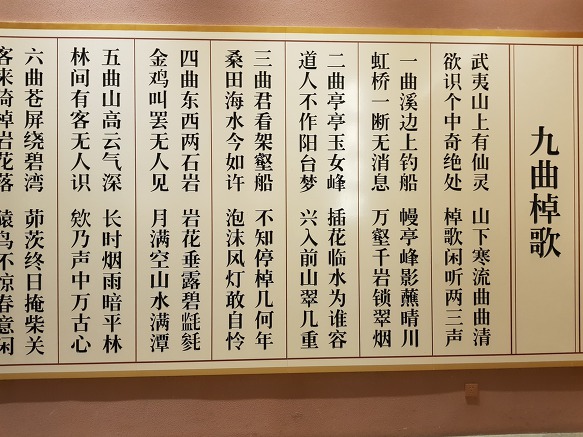 九曲棹歌
武夷山上有仙灵 山下寒流曲曲清
欲识个中奇绝处 棹歌闲听两三声
一曲溪边上钓船 幔亭峰影蘸晴川
虹桥一断无消息 万壑千岩锁翠烟
二曲亭亭玉女峰 插花临水为谁容
道人不作阳台梦 兴入前山翠几重
三曲君看架壑船 不知停棹几何年
桑田海水今如许 泡沫风灯敢自怜
四曲东西两石岩 岩花垂露碧㲯毵
金鸡叫罢无人见 月满空山水满潭
五曲山高云气深 长时烟雨暗平林
林间有客无人识 欸乃声中万古心
六曲苍屏绕碧湾 茆茨终日掩柴关
客来倚棹岩花落 猿鸟不惊春意闲